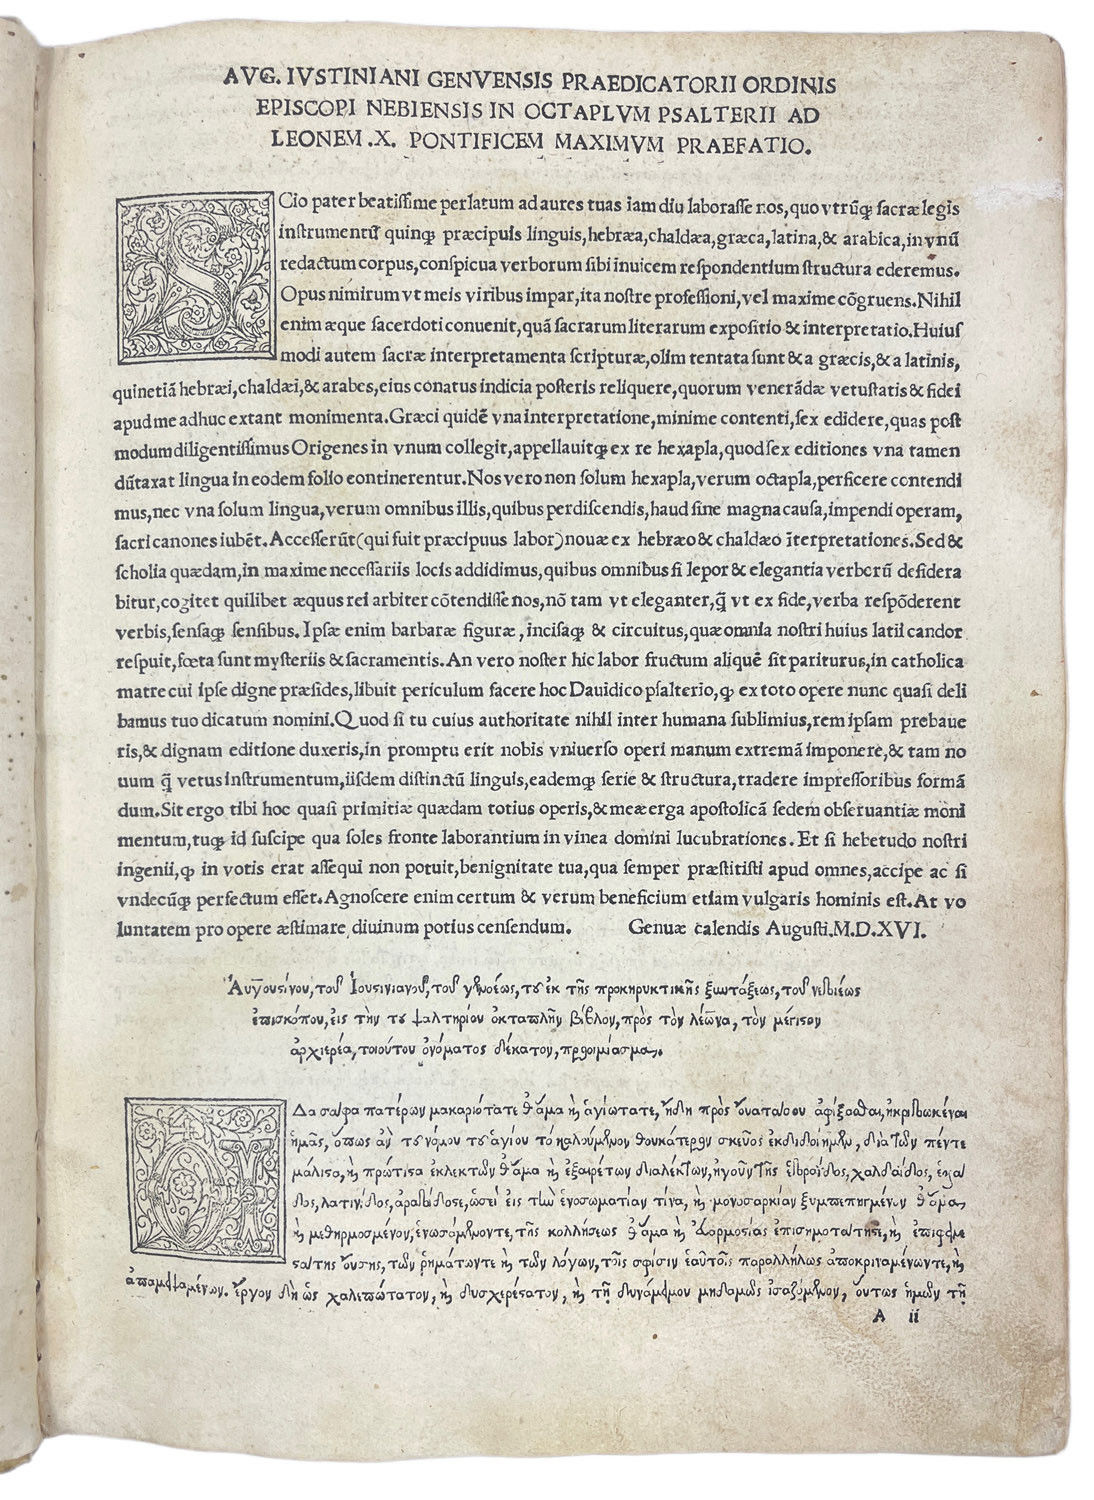 AVG. IVSTINIANI GENVENSIS PRAEDICATORII ORDINIS
EPISCOPI NEBIENSIS IN OCTAPLVM PSALTERII AD
LEONEM .X. PONTIFICEM MAXIMVM PRAEFATIO.
SCio pater beatissime perlatum ad aures tuas iam diu laborasse nos, quo vtrūq; sacræ legis
instrumentū quinq; præcipuis linguis, hebræa, chaldæa, græca, latina, & arabica, in vnū
redactum corpus, conspicua verborum sibi inuicem respondentium structura ederemus.
Opus nimirum vt meis viribus impar, ita nostre professioni, vel maxime cōgruens. Nihil
enim æque sacerdoti conuenit, quā sacrarum literarum expositio & interpretatio. Huius
modi autem sacræ interpretamenta scripturæ, olim tentata sunt & a græcis, & a latinis,
quinetiā hebræi, chaldæi, & arabes, eius conatus indicia posteris reliquere, quorum venerādæ vetustatis & fidei
apud me adhuc extant monimenta. Græci quidē vna interpretatione, minime contenti, sex edidere, quas post
modum diligentissimus Origenes in vnum collegit, appellauitq; ex re hexapla, quod sex editiones vna tamen
dūtaxat lingua in eodem folio continerentur. Nos vero non solum hexapla, verum octapla, perficere contendi
mus, nec vna solum lingua, verum omnibus illis, quibus perdiscendis, haud sine magna causa, impendi operam,
sacri canones iubēt. Accesserūt (qui fuit præcipuus labor) nouæ ex hebræo & chaldæo īterpretationes. Sed &
scholia quædam, in maxime necessariis locis addidimus, quibus omnibus si lepor & elegantia verborū desidera
bitur, cogitet quilibet æquus rei arbiter cōtendisse nos, nō tam vt eleganter, q̄ vt ex fide, verba respōderent
verbis, sensaq; sensibus. Ipsæ enim barbaræ figuræ, incisaq; & circuitus, quæ omnia nostri huius latii candor
respuit, fœta sunt mysteriis & sacramentis. An vero noster hic labor fructum aliquē sit pariturus, in catholica
matre cui ipse digne præsides, libuit periculum facere hoc Dauidico psalterio, q; ex toto opere nunc quasi deli
bamus tuo dicatum nomini. Quod si tu cuius authoritate nihil inter humana sublimius, rem ipsam probaue
ris, & dignam editione duxeris, in promptu erit nobis vniuerso operi manum extremā imponere, & tam no
uum q̄ vetus instrumentum, iisdem distinctū linguis, eademq; serie & structura, tradere impressoribus formā
dum. Sit ergo tibi hoc quasi primitiæ quædam totius operis, & meæ erga apostolicā sedem obseruantiæ moni
mentum, tuq; id suscipe qua soles fronte laborantium in vinea domini lucubrationes. Et si hebetudo nostri
ingenii, q; in votis erat assequi non potuit, benignitate tua, qua semper præstitisti apud omnes, accipe ac si
vndecūq; perfectum esset. Agnoscere enim certum & verum beneficium etiam vulgaris hominis est. At vo
luntatem pro opere æstimare, diuinum potius censendum. Genuæ calendis Augusti. M.D.XVI.
Αὐγουστίνου, τοῦ Ἰουστινιανοῦ, τοῦ γενοέως, τοῦ ἐκ τῆς προκηρυκτικῆς ξυντάξεως, τοῦ νεβιέως
ἐπισκόπου, εἰς τὴν τοῦ ψαλτηρίου ὀκταπλῆν βίβλον, πρὸς τὸν λέωνα, τὸν μέγιστον
ἀρχιερέα, τοιούτου ὀνόματος δέκατον, προοιμίασμα.
ΟΙΔα σάφα πατέρων μακαριότατε θ' ἅμα καὶ ἁγιώτατε, ἤδη πρὸς οὔατα σου ἀφίξοθαι, ἠκριβωκέναι
ἡμᾶς, ὅπως ἂν τοῦ νόμου τοῦ ἁγίου τὸ καλούμενον θοὐκάτερον σκεῦος ἐκδιδοίημεν, διὰ τῶν πέντε
μάλιστα, καὶ πρώτιστα ἐκλεκτῶν θ' ἅμα καὶ ἐξαιρέτων διαλέκτων, ἠγοῦν τῆς ἑβραΐδος, χαλδαΐδος, ἑλλά
δος, λατινίδος, ἀραβίδος τε, ὡστεὶ εἰς τὴν ἑνοσωματίαν τινα, καὶ μονοσαρκίαν ξυμπεπηγμένον θ' ἅμα
καὶ μεθηρμοσμένον, ἑνωσάμενοντε, τῆς κολλήσεως θ' ἅμα καὶ ἁρμοσίας ἐπισημοτάτης τε, καὶ ἐπιφανε
στάτης οὔσης, τῶν ῥημάτωντε καὶ τῶν λόγων, τοῖς σφίσιν ἑαυτοῖς παραλλήλως ἀποκριναμένωντε, καὶ
ἀπαμειψαμένων. ἔργον δὴ ὡς χαλεπώτατον, καὶ δυσχερέστατον, καὶ τῇ δυνάμει μου μηδαμῶς ἰσαζόμενον, οὕτως ἡμῶν τῇ
A ii